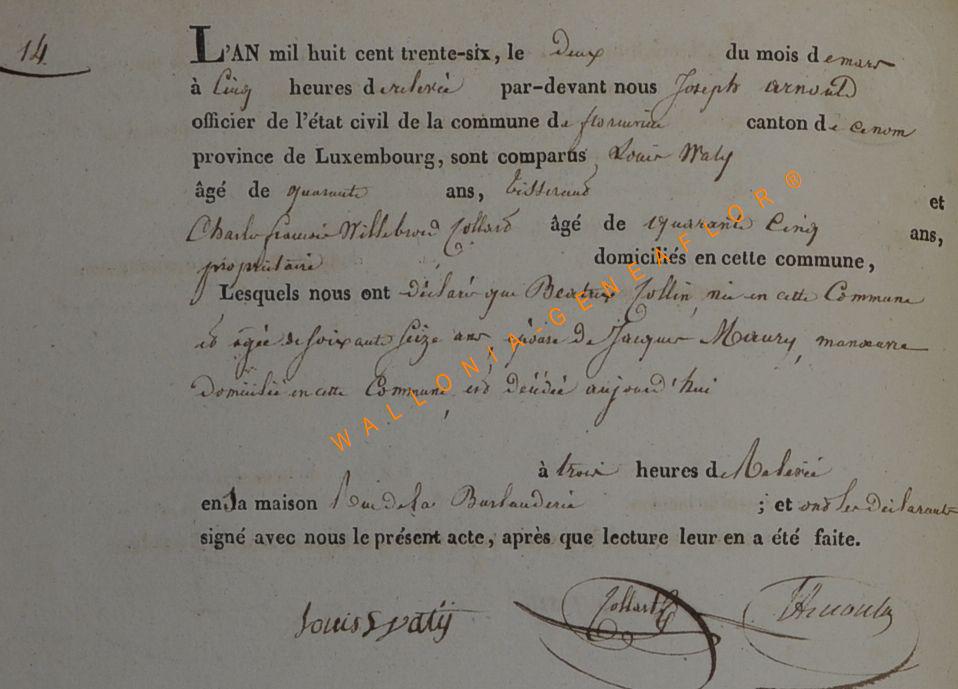 14
L'AN mil huit cent trente-six, le deux du mois de mars
à Cinq heures de relevée par-devant nous Joseph Arnould
officier de l'état civil de la commune de florenville canton de
province de Luxembourg, sont comparus Louis Waty
âgé de quarante ans, tisserand et
Charle françois Willebrord Collard âgé de quarante Cinq ans,
propriétaire domiciliés en cette commune,
Lesquels nous ont déclaré que Beatrix Collin née en cette Commune
et agée de soixante Seize ans, épouse de Jacques Maury, manoeuvre
Domiciliée en cette Commune est décédée aujourd'hui
à trois heures de Relevée
en la maison Rue de la ; et ont les déclarants
signé avec nous le présent acte, après que lecture leur en a été faite.
Louis Watÿ Collard Arnould
WALLONIA-GENEAFLOR ®